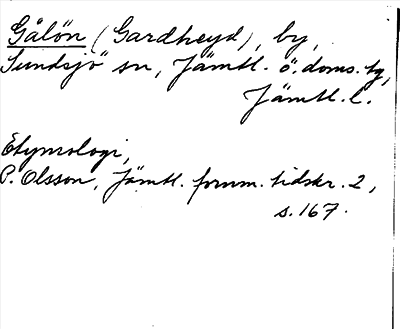 Gålön (Gardheyd), by,
Sundsjö sn, Jämtl. ö. doms. tg,
Jämtl. l.
Etymologi,
P. Olsson, Jämtl. fornm. tidskr. 2,
s. 167.